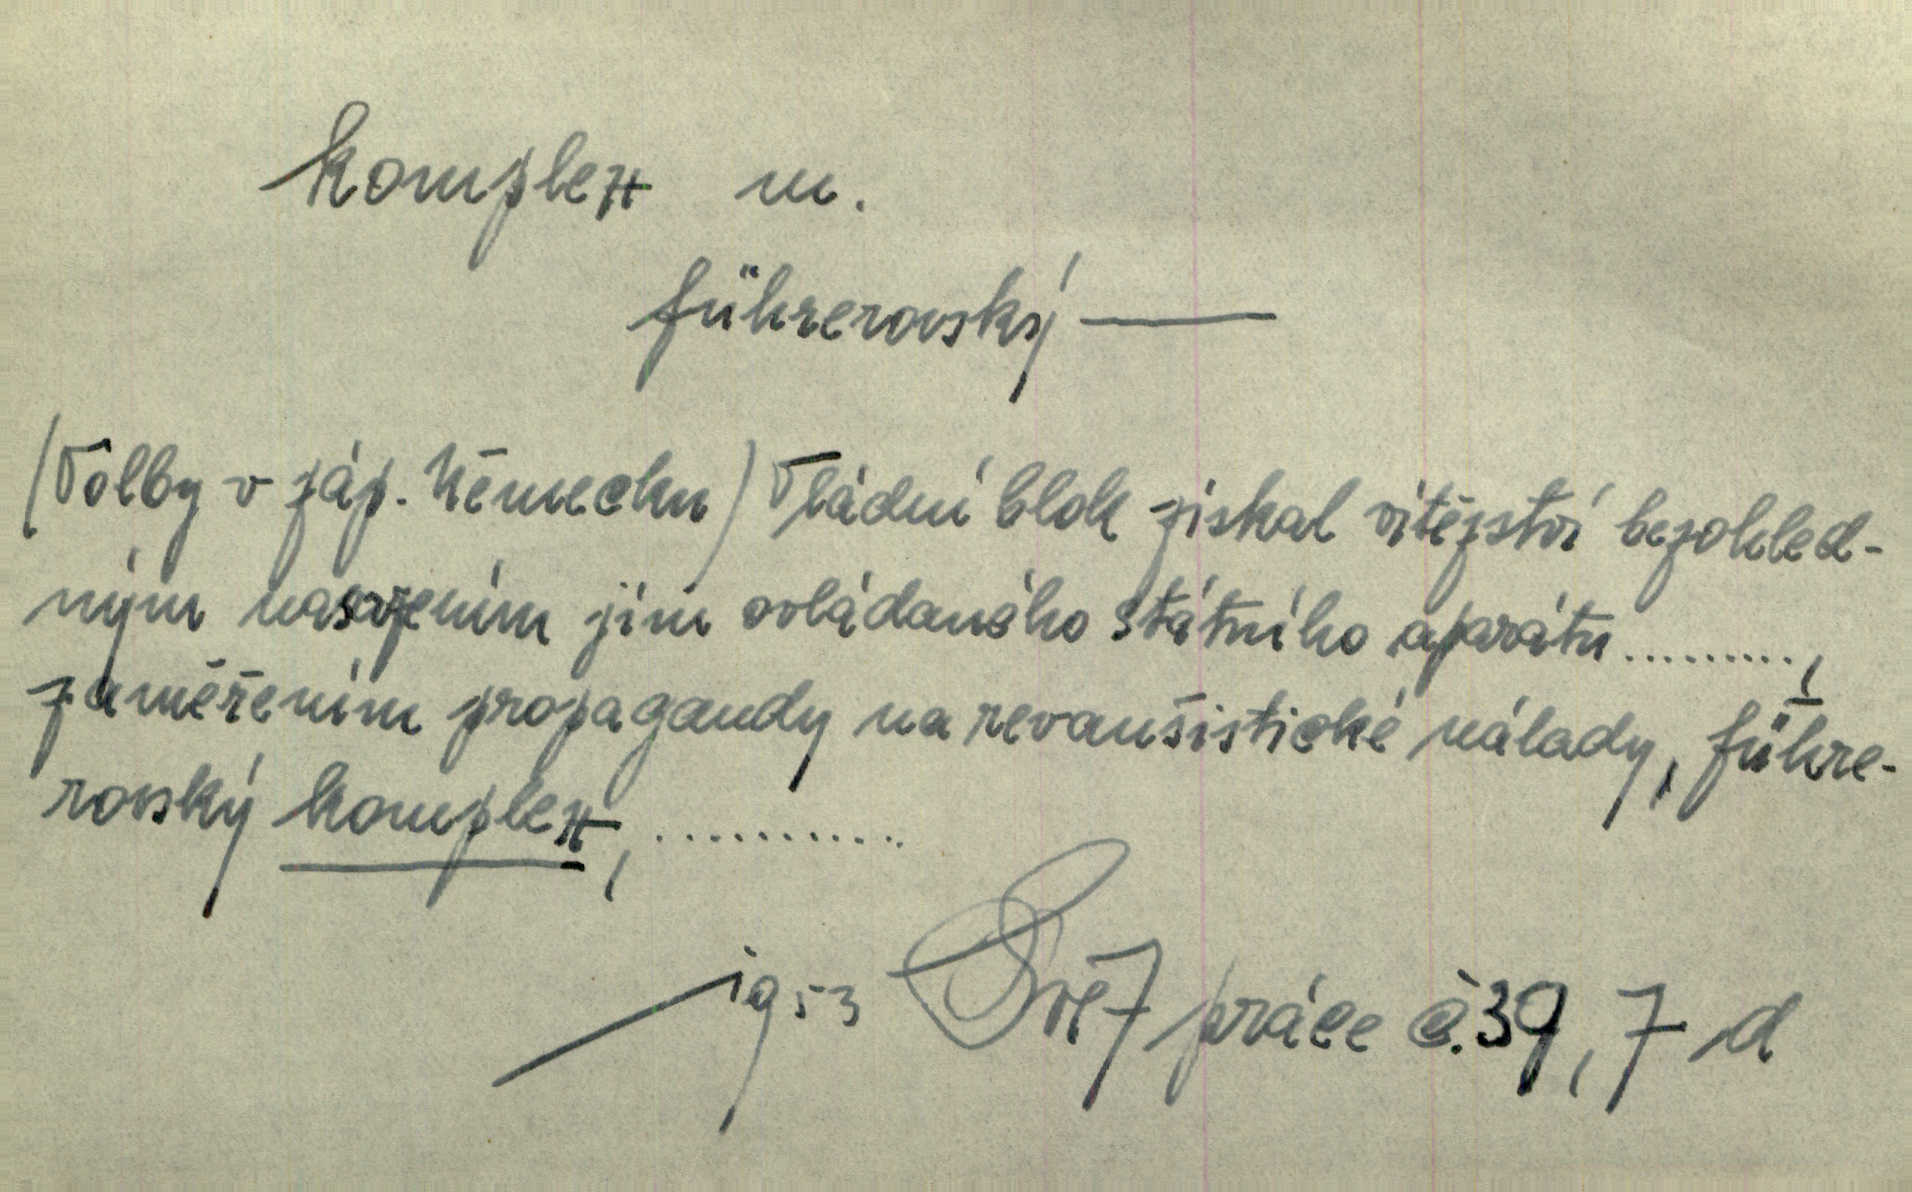 komplex m.
führerovský —
(Volby v záp. Německu) Vládní blok získal vítězství bezohled-
ným nasazením jím ovládaného státního aparátu .........,
zaměřením propagandy na revanšistické nálady, führe-
rovský komplex, ...........
1953 Svět práce č. 39, 7 d